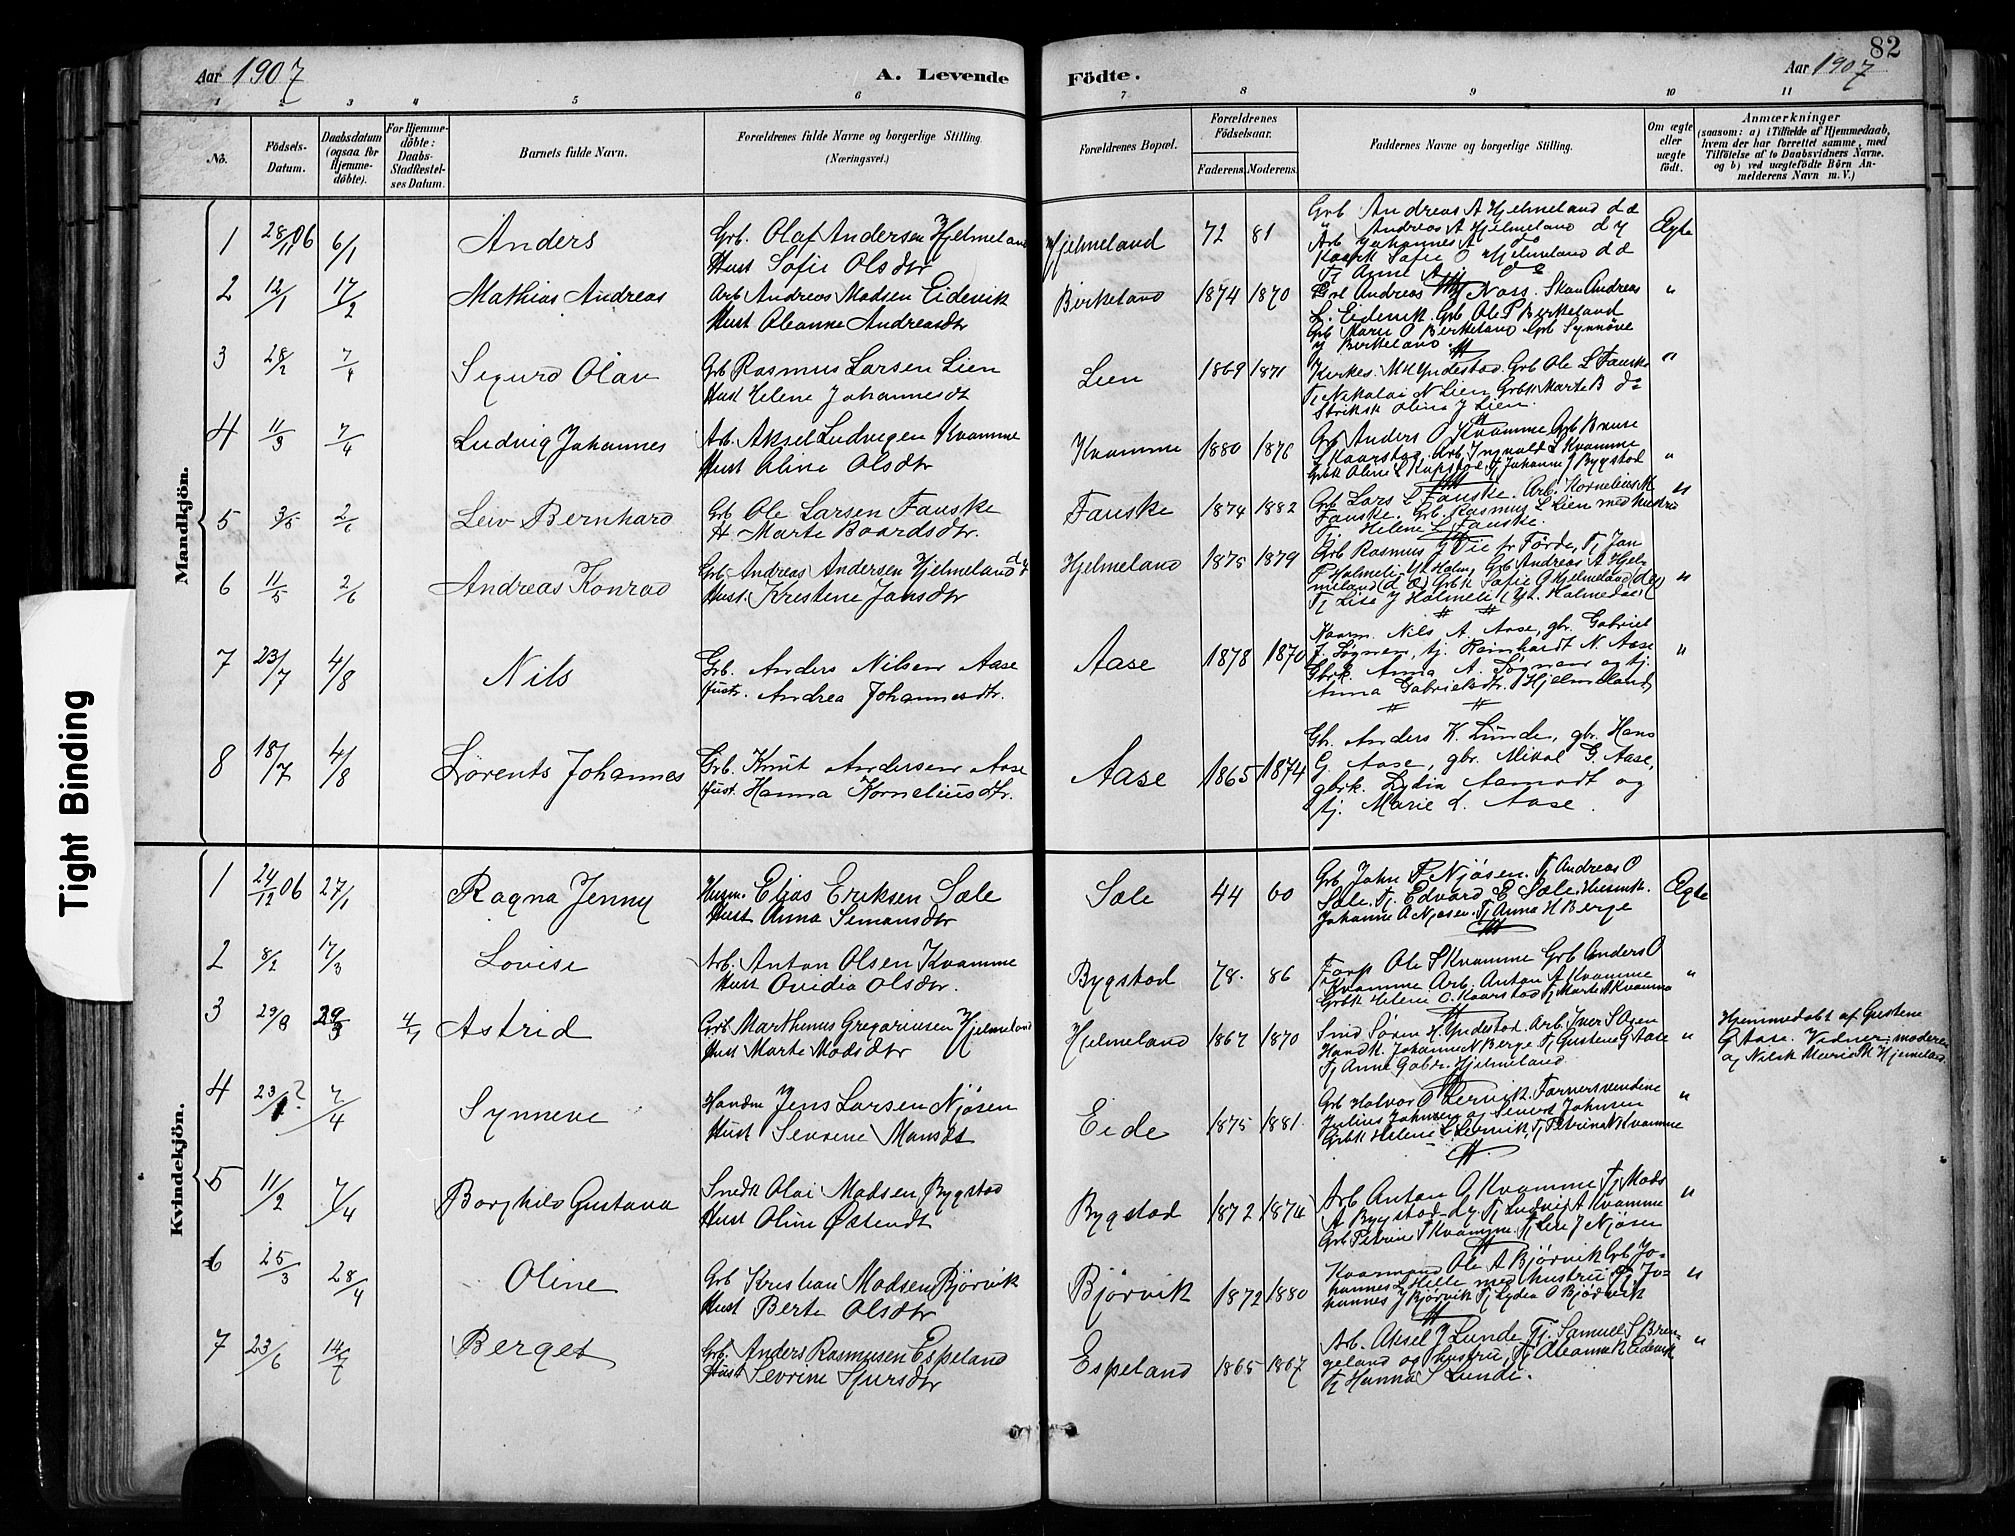 82
Aar 1907
A. Levende
Födte.
Aar 1907
1 2 3 4 5 6 7 8 9 10 11
No.
Födsels-
Datum.
Daabsdatum
(ogsaa for
Hjemme-
döbte).
For Hjemme-
döbte:
Daabs-
Stadfæstel-
ses Datum.
Barnets fulde Navn.
Forældrenes fulde Navne og borgerlige Stilling.
(Næringsvei.)
Forældrenes Bopæl.
Forældrenes
Födselsaar.
Faderens. Moderens.
Faddernes Navne og borgerlige Stilling.
Om ægte
eller
uægte
födt.
Anmærkninger
(saasom: a) i Tilfælde af Hjemmedaab,
hvem der har forrettet samme, med
Tilföielse af to Daabsvidners Navne.
og b) ved uægtefödte Börn An-
melderens Navn m. V.)
Mandkjön.
1 28/11 06 6/1 Anders
Grb. Olaf Andersen Hjelmeland
Hust Sofie Olsdtr
Hjelmeland 72 81
Grb Andreas A Hjelmeland d æ
" Andreas A Hjelmeland d y
Arb Johannes A do
Kaark Sofie O Hjelmeland d æ
Tj Anne A
Ægte
2 12/1 17/2 Mathias Andreas
Arb Andreas Madsen Eidevik
Hust Oleanne Andreasdtr
Birkeland 1874 1870
Grb Andreas Nass. Skom Andreas
L. Eidevik Grb Ole P Birkeland
Grb Marie O Birkeland Grb Synnöve
J Birkeland.
"
3 28/2 7/4 Sigurd Olav
Grb Rasmus Larsen Lien
Hust Helene Johannesdt
Lien 1869 1871
Kirkes. M H Yndestad. Grb Ole L Fauske
Tj Nikolai N Lien. Grbk Marte B do
Striksk Olina J Lien.
"
4 11/3 7/4 Ludvig Johannes
Arb. Aksel Ludvigsen Kvamme
Hust Oline Olsdtr
Kvamme 1880 1876
Grb Anders O Kvamme Grb Bruse
L Kaarstad, Arb. Ingvald L Kvamme
Grbk Oline L Kapstad Tj Johanne J Bygstad
"
5 3/5 2/6 Leiv Bernhard
Grb Ole Larsen Fauske
H Marte Baardsdtr.
Fauske 1874 1882
Grb Lars L Fauske. Arb. Kornelius M
Fauske. Grb. Rasmus L Lien med hustru
Tj Helene L Fauske.
"
6 11/5 2/6 Andreas Konrad
Grb. Andreas Andersen Hjelmeland d y
Hust. Kristene Jansdtr
Hjelmeland 1875 1879
Grb Rasmus J Vie fr Förde, Tj Jan
P Holmeli Yt Holm, Grb Andreas A Hjel-
meland (d æ) Grbk Sofie O Hjelmeland (d y)
Tj Lisa J Holmeli (Yt. Holmedal)
"
7 23/7 4/8 Nils
Grb. Anders Nilsen Aase
Hust. Andrea Johannesdtr.
Aase 1878 1870
Kaarm. Nils A. Aase, gbr. Gabriel
J. Søgnen, tj. Reinhardt N. Aase
Gbrk. Anna A. Søgnen og tj.
Anna Gabrielsdtr. Hjelmeland
"
8 18/7 4/8 Lorents Johannes
Grb. Knut Andersen Aase
Hust. Hanna Korneliusdtr.
Aase 1865 1874
Gbr. Anders K. Lunde, gbr. Hans
G. Aase, gbr. Mikal G. Aase,
gbrk. Lydia Aamodt og
tj. Marie L. Aase.
Kvindekjön.
1 24/12 06 27/1 Ragna Jenny
Husm. Elias Eriksen Sæle
Hust Anna Simansdtr
Sæle 44 60
Grb John P Njøsen. Tj Andreas O
Sæle. Tj. Edvard E Sæle. Husmk.
Johanne A Njøsen. Tj Anna H Berge
Ægte
2 8/2 17/3 Lovise
Arb. Anton Olsen Kvamme
Hust Ovidia Olsdtr.
Bygstad 78. 86
Forp Ole S Kvamme Grb Anders O
Kvamme Arb. Anton A Kvamme
Grbk Helene O. Kaarstad Tj Marte M Kvamme
"
3 29/8 29/3 4/7 Astrid
Grb Marthinus Gregoriusen Hjelmeland
Hust Marte Madsdtr
Hjelmeland 1867 1870
Smid Søren H. Yndestad. Arb. Iver S Aasen
Handk. Johanne N Berge Tj Gustene G Aase
Tj Anne Gabr. Hjelmeland.
"
Hjemmedøbt af Gustene
G Aase. Vidner: moderen
og Nilsk Marie M Hjelmeland.
4 23/1? 7/4 Synneve
Handm Jens Larsen Njøsen
Hust Sevrine Monsdt
Eide 1875 1881.
Grb Halvor O Lervik. Farversvendene
Julius Johnsen og Severt Johnsen
Grbk Helene L Lervik, Tj Petrina N Kvamme
"
5 11/2 7/4 Borghild Gustava
Snedk Olai Madsen Bygstad
Hust Oline Østendt
Bygstad 1872 1874
Arb Anton O Kvamme Tj Mads
A Bygstad d y Tj Ludvig A Kvamme
Grb Petrine S Kvamme. Tj Lise J Njøsen
"
6 25/3 28/4 Oline
Grb Kristian Madsen Bjørvik
Hust Berte Olsdtr
Bjørvik 1872 1880
Kaarmand Ole A Bjørvik Grb Jo-
hannes L Hille med hustru Tj Jo-
hannes J Bjørvik Tj Lydia O Bjørvik
"
7 23/6 14/7 Berget
Grb. Anders Rasmusen Espeland
Hust Sevrine Sjursdtr
Espeland 1865 1867
Arb. Aksel J Lunde Tj. Samuel S Bren-
geland og hustru, Tj Oleanna R Eidevik
Tj Hanna S Lunde.
"
Tight Binding